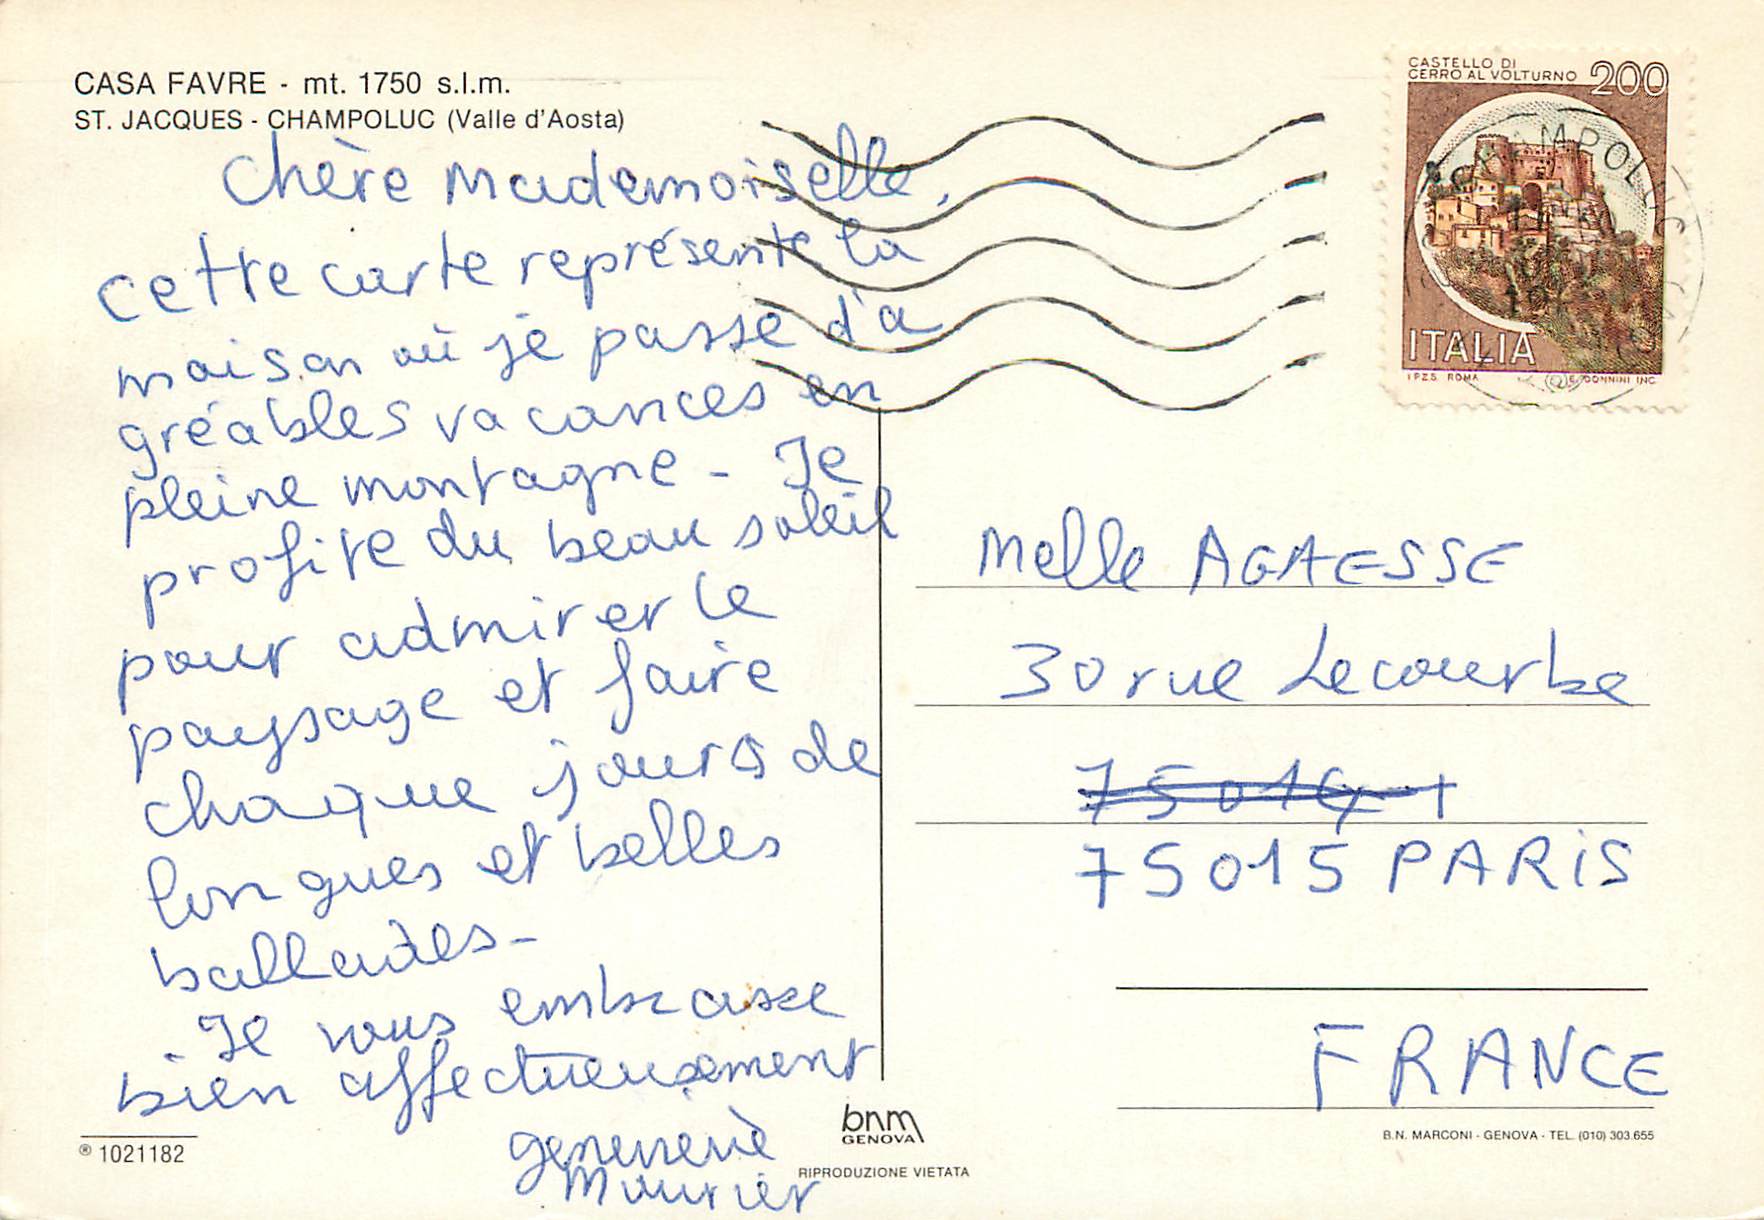 CASA FAVRE - mt. 1750 s.l.m.
ST. JACQUES - CHAMPOLUC (Valle d'Aosta)
Chère Mademoiselle,
cette carte représente la
maison où je passe d'a
gréables vacances en
pleine montagne - Je
profite du beau soleil
pour admirer le
paysage et faire
chaque jours de
longues et belles
ballades -
Je vous embrasse
bien affectueusement
Mourier
® 1021182
CASTELLO DI
CERRO AL VOLTURNO 200
CHAMPOLUC
ITALIA
I.P.Z.S. ROMA E. DONNINI INC.
Melle AGAESSE
30 rue Lecourbe
75015 PARIS
FRANCE
bnm
GENOVA
RIPRODUZIONE VIETATA
B.N. MARCONI - GENOVA - TEL. (010) 303.655